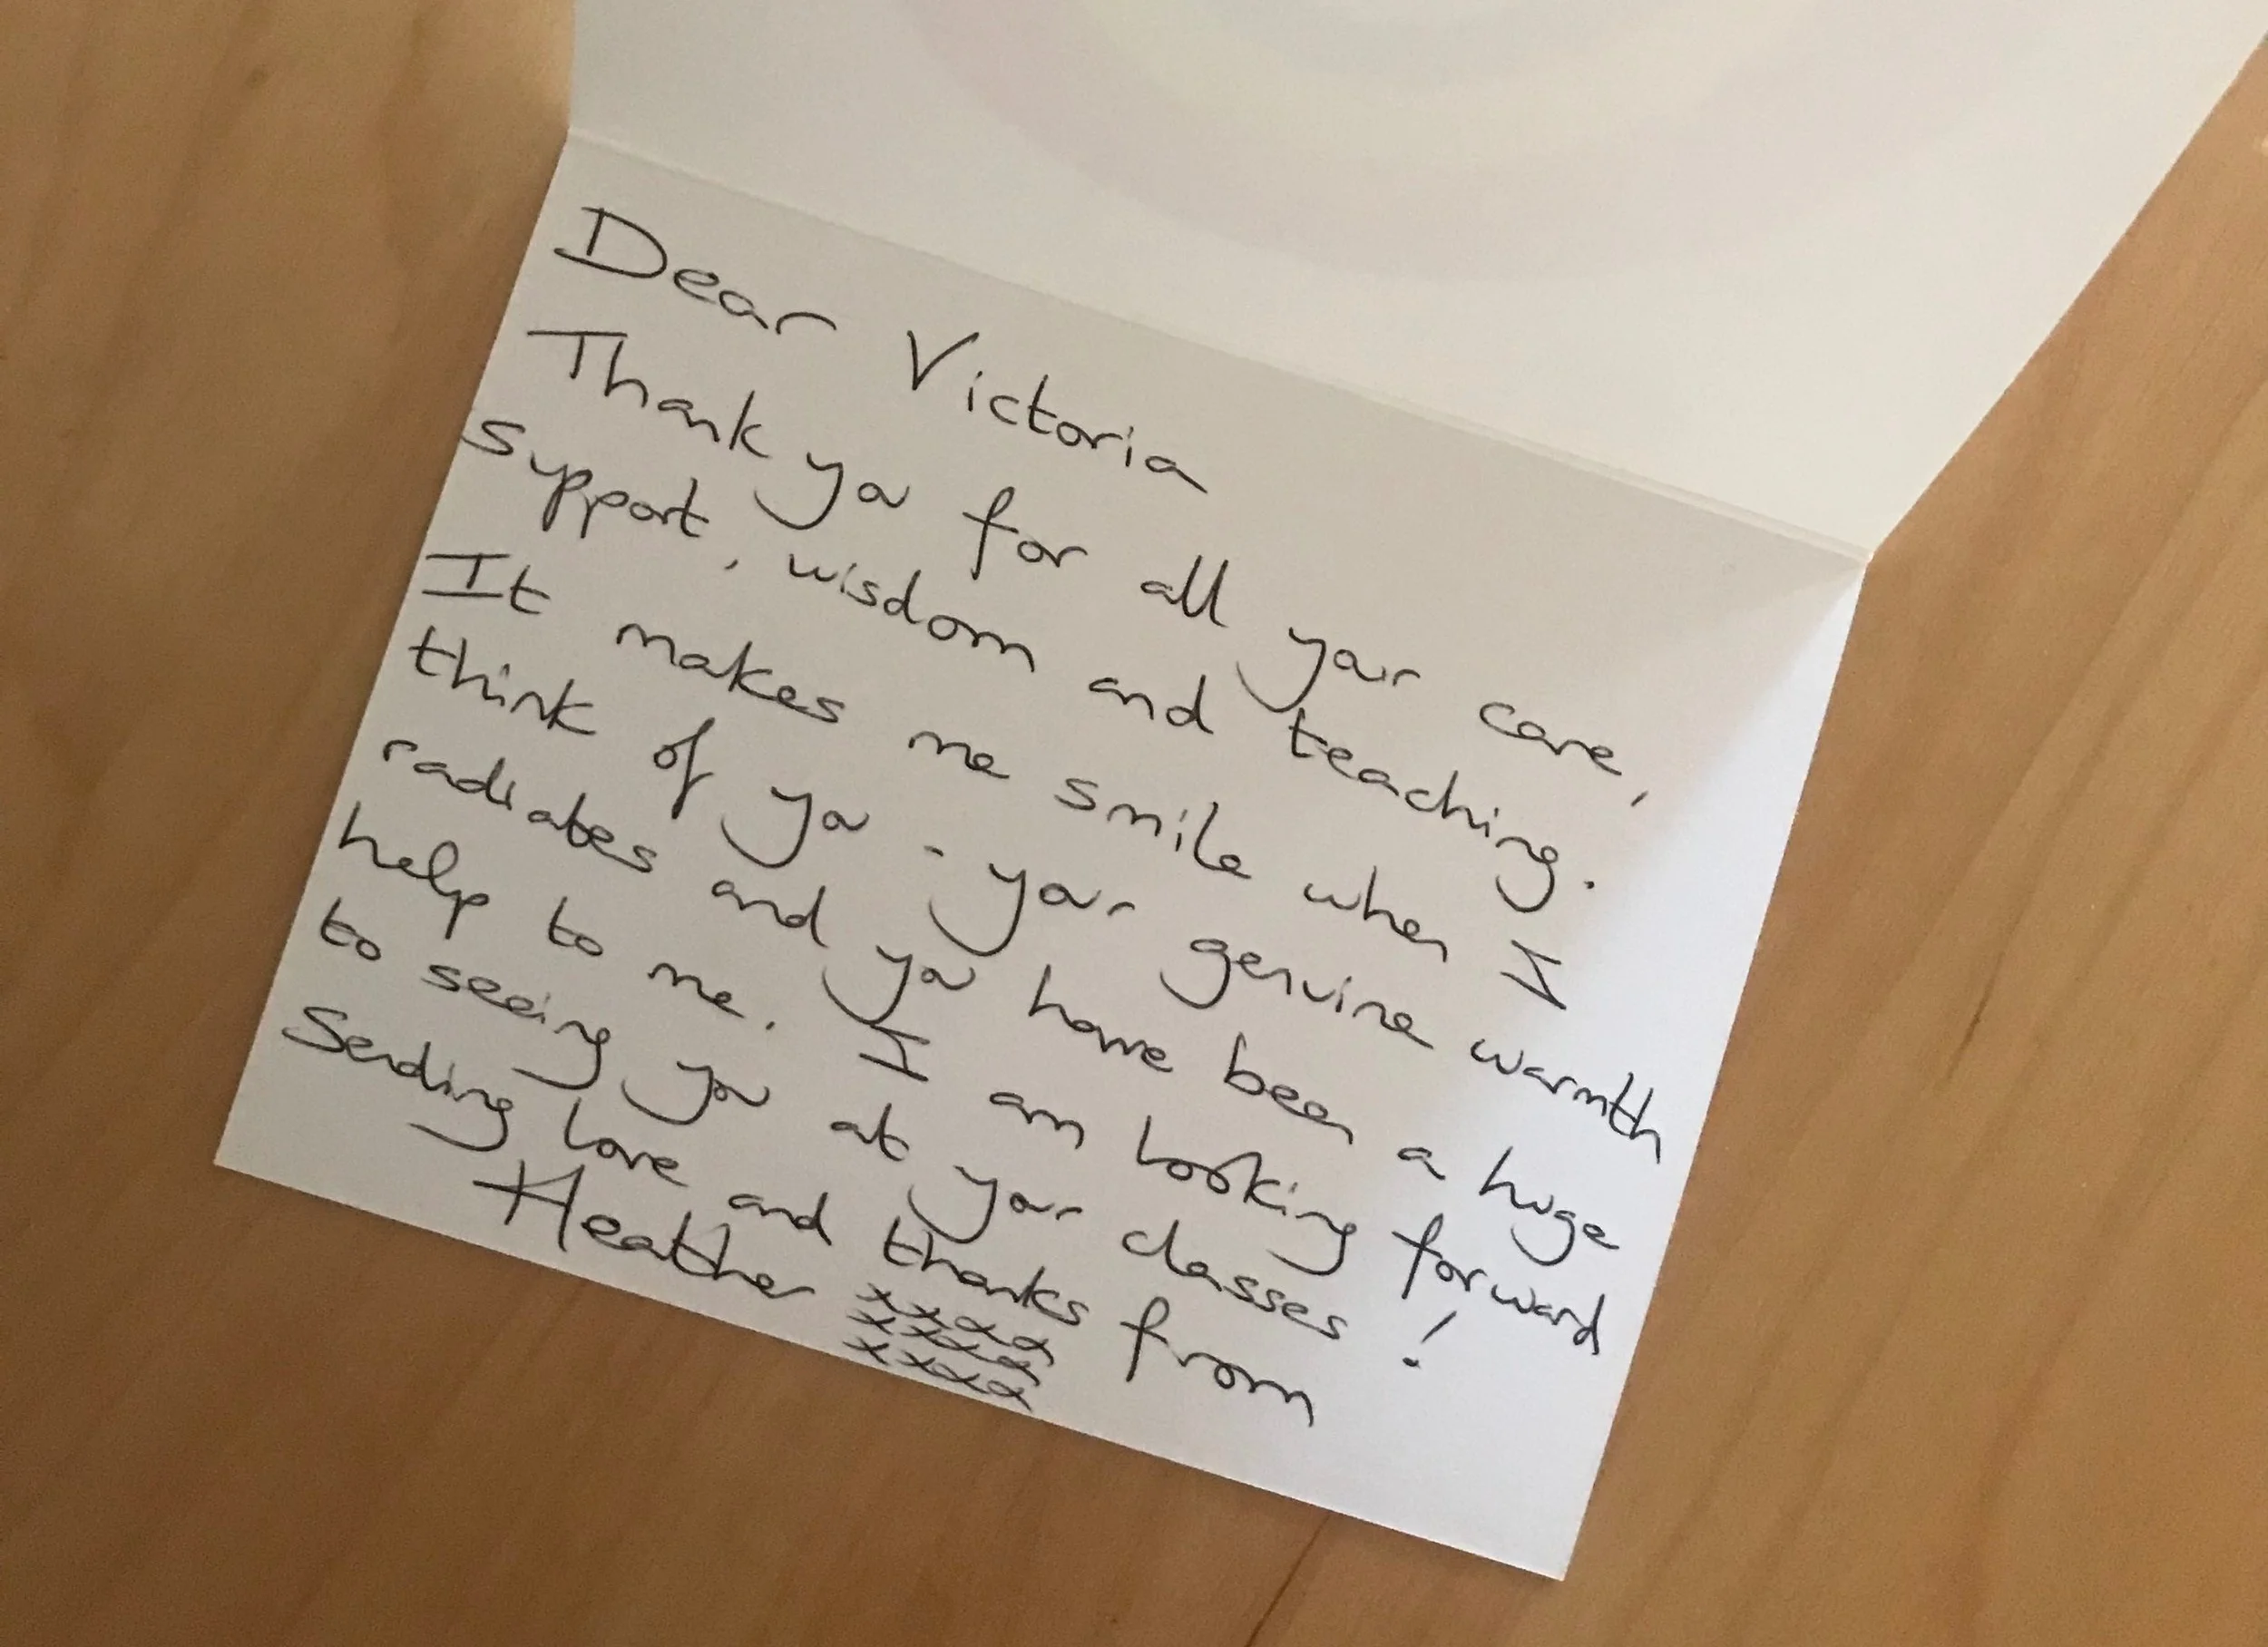 Dear Victoria
Thank you for all your care,
support, wisdom and teaching.
It makes me smile when I
think of you - your genuine warmth
radiates and you have been a huge
help to me. I am looking forward
to seeing you at your classes!
Sending love and thanks from
Heather xxxx
xxxx
xxxx